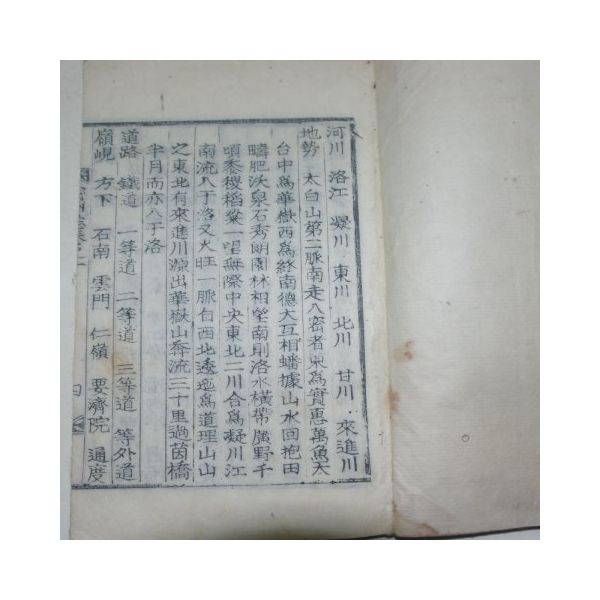 河川 洛江 凝川 東川 北川 甘川 來進川
地勢 太白山第二脈南走入密者東爲實惠萬魚天
台中爲華嶽西爲終南德大互相蟠據山水回抱田
疇肥沃泉石秀朗園林相望南則洛水橫帶廣野千
頃黍稷稻粱一望無際中央東北二川合爲凝川江
南流入于洛又大旺一脈自西北逶迤爲道理山山
之東北有來進川源出華嶽山奔流三十里過茵橋
半月而亦入于洛
道路 鐵道 一等道 二等道 三等道 等外道
嶺峴 方下 石南 雲門 仁嶺 要濟院 通度